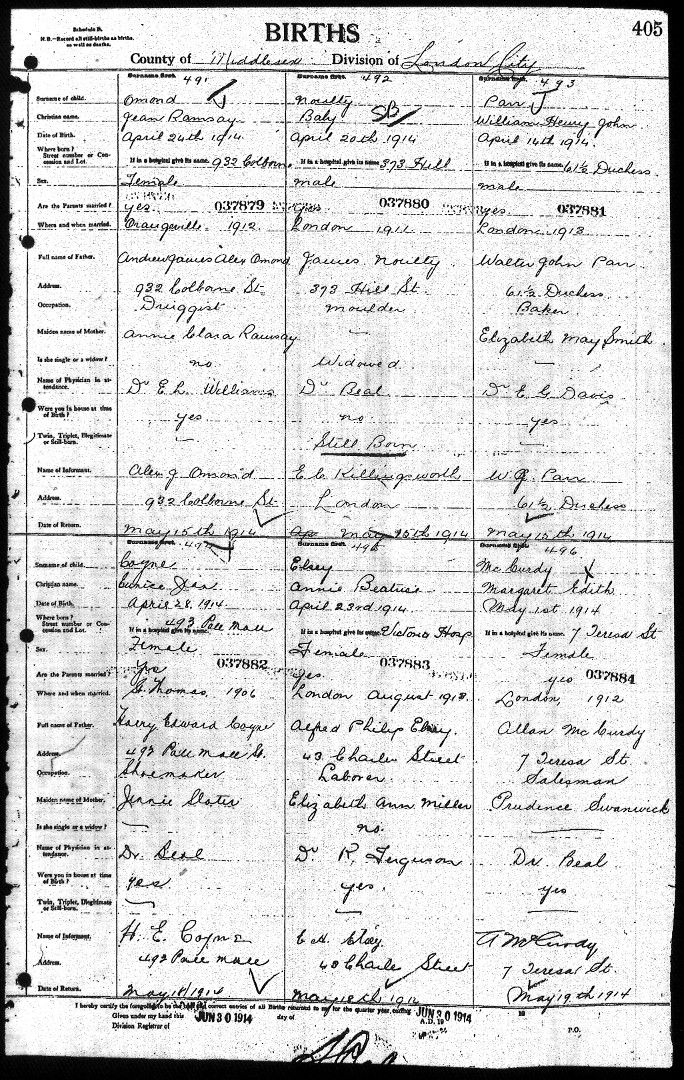 Schedule B.
N.B.—Record all still-births as births, as well as deaths.
BIRTHS
405
County of Middlesex Division of London City
Surname first. 491 Surname first. 492 Surname first. 493
Surname of child. Omond Noulty Parr
Christian name. Jean Ramsay Baby SB William Henry John
Date of Birth. April 24th 1914 April 20th 1914 April 14th 1914.
Where born? Street number or Concession and Lot. If in a hospital give its name. 932 Colborne If in a hospital give its name 373 Hill If in a hospital give its name. 61½ Duchess.
Sex. Female male male
Are the Parents married? yes 037879 yes 037880 yes 037881
Where and when married. Orangeville 1912. London 1911 London 1913
Full name of Father. Andrew James Alex Omond James Noulty Walter John Parr
Address. 932 Colborne St 373 Hill St. 61½ Duchess.
Occupation. Druggist moulder Baker
Maiden name of Mother. Annie Clara Ramsay — Elizabeth May Smith
Is she single or a widow? no Widowed —
Name of Physician in attendance. Dr E. L. Williams Dr Beal Dr E G Davis
Were you in house at time of Birth? yes no yes
Twin, Triplet, Illegitimate or Still-born. — Still Born —
Name of Informant. Alex J Omond E. C. Killingsworth W J. Parr
Address. 932 Colborne St London 61½ Duchess
Date of Return. May 15th 1914 May 15th 1914 May 15th 1914
Surname first. Surname first. 495 Surname first. 496
Surname of child. Coyne Elsey McCurdy
Christian name. Eunice Margaret Edith
Date of Birth. April 28, 1914 April 23rd 1914 May 1st 1914
Where born? Street number or Concession and Lot. If in a hospital give its name. 493 Pall Mall If in a hospital give its name Victoria Hosp If in a hospital give its name 7 Teresa St
Sex. Female Female Female
Are the Parents married? yes 037882 yes. 037883 yes 037884
Where and when married. St. Thomas, 1906 London August 1913. London, 1912
Full name of Father. Harry Edward Coyne Alfred Philip Elsey. Allan McCurdy
Address. 493 Pall Mall St. 43 Charles Street 7 Teresa St.
Occupation. Shoemaker Laborer Salesman
Maiden name of Mother. Jennie Slater Elizabeth Ann Miller Prudence Swanwick
Is she single or a widow? — no. —
Name of Physician in attendance. Dr. Beal Dr R. Ferguson Dr. Beal
Were you in house at time of Birth? yes yes. yes
Twin, Triplet, Illegitimate or Still-born. — — —
Name of Informant. H. E. Coyne A McCurdy
Address. 493 Pall Mall 43 Charles Street 7 Teresa St.
Date of Return. May 18/1914 May 18th 1914 May 19th 1914
I hereby certify the foregoing to be the true and correct entries of all Births returned to me for the quarter year, ending JUN 30 1914 19
Given under my hand this JUN 30 1914 day of A.D. 19
Division Registrar of P.O.